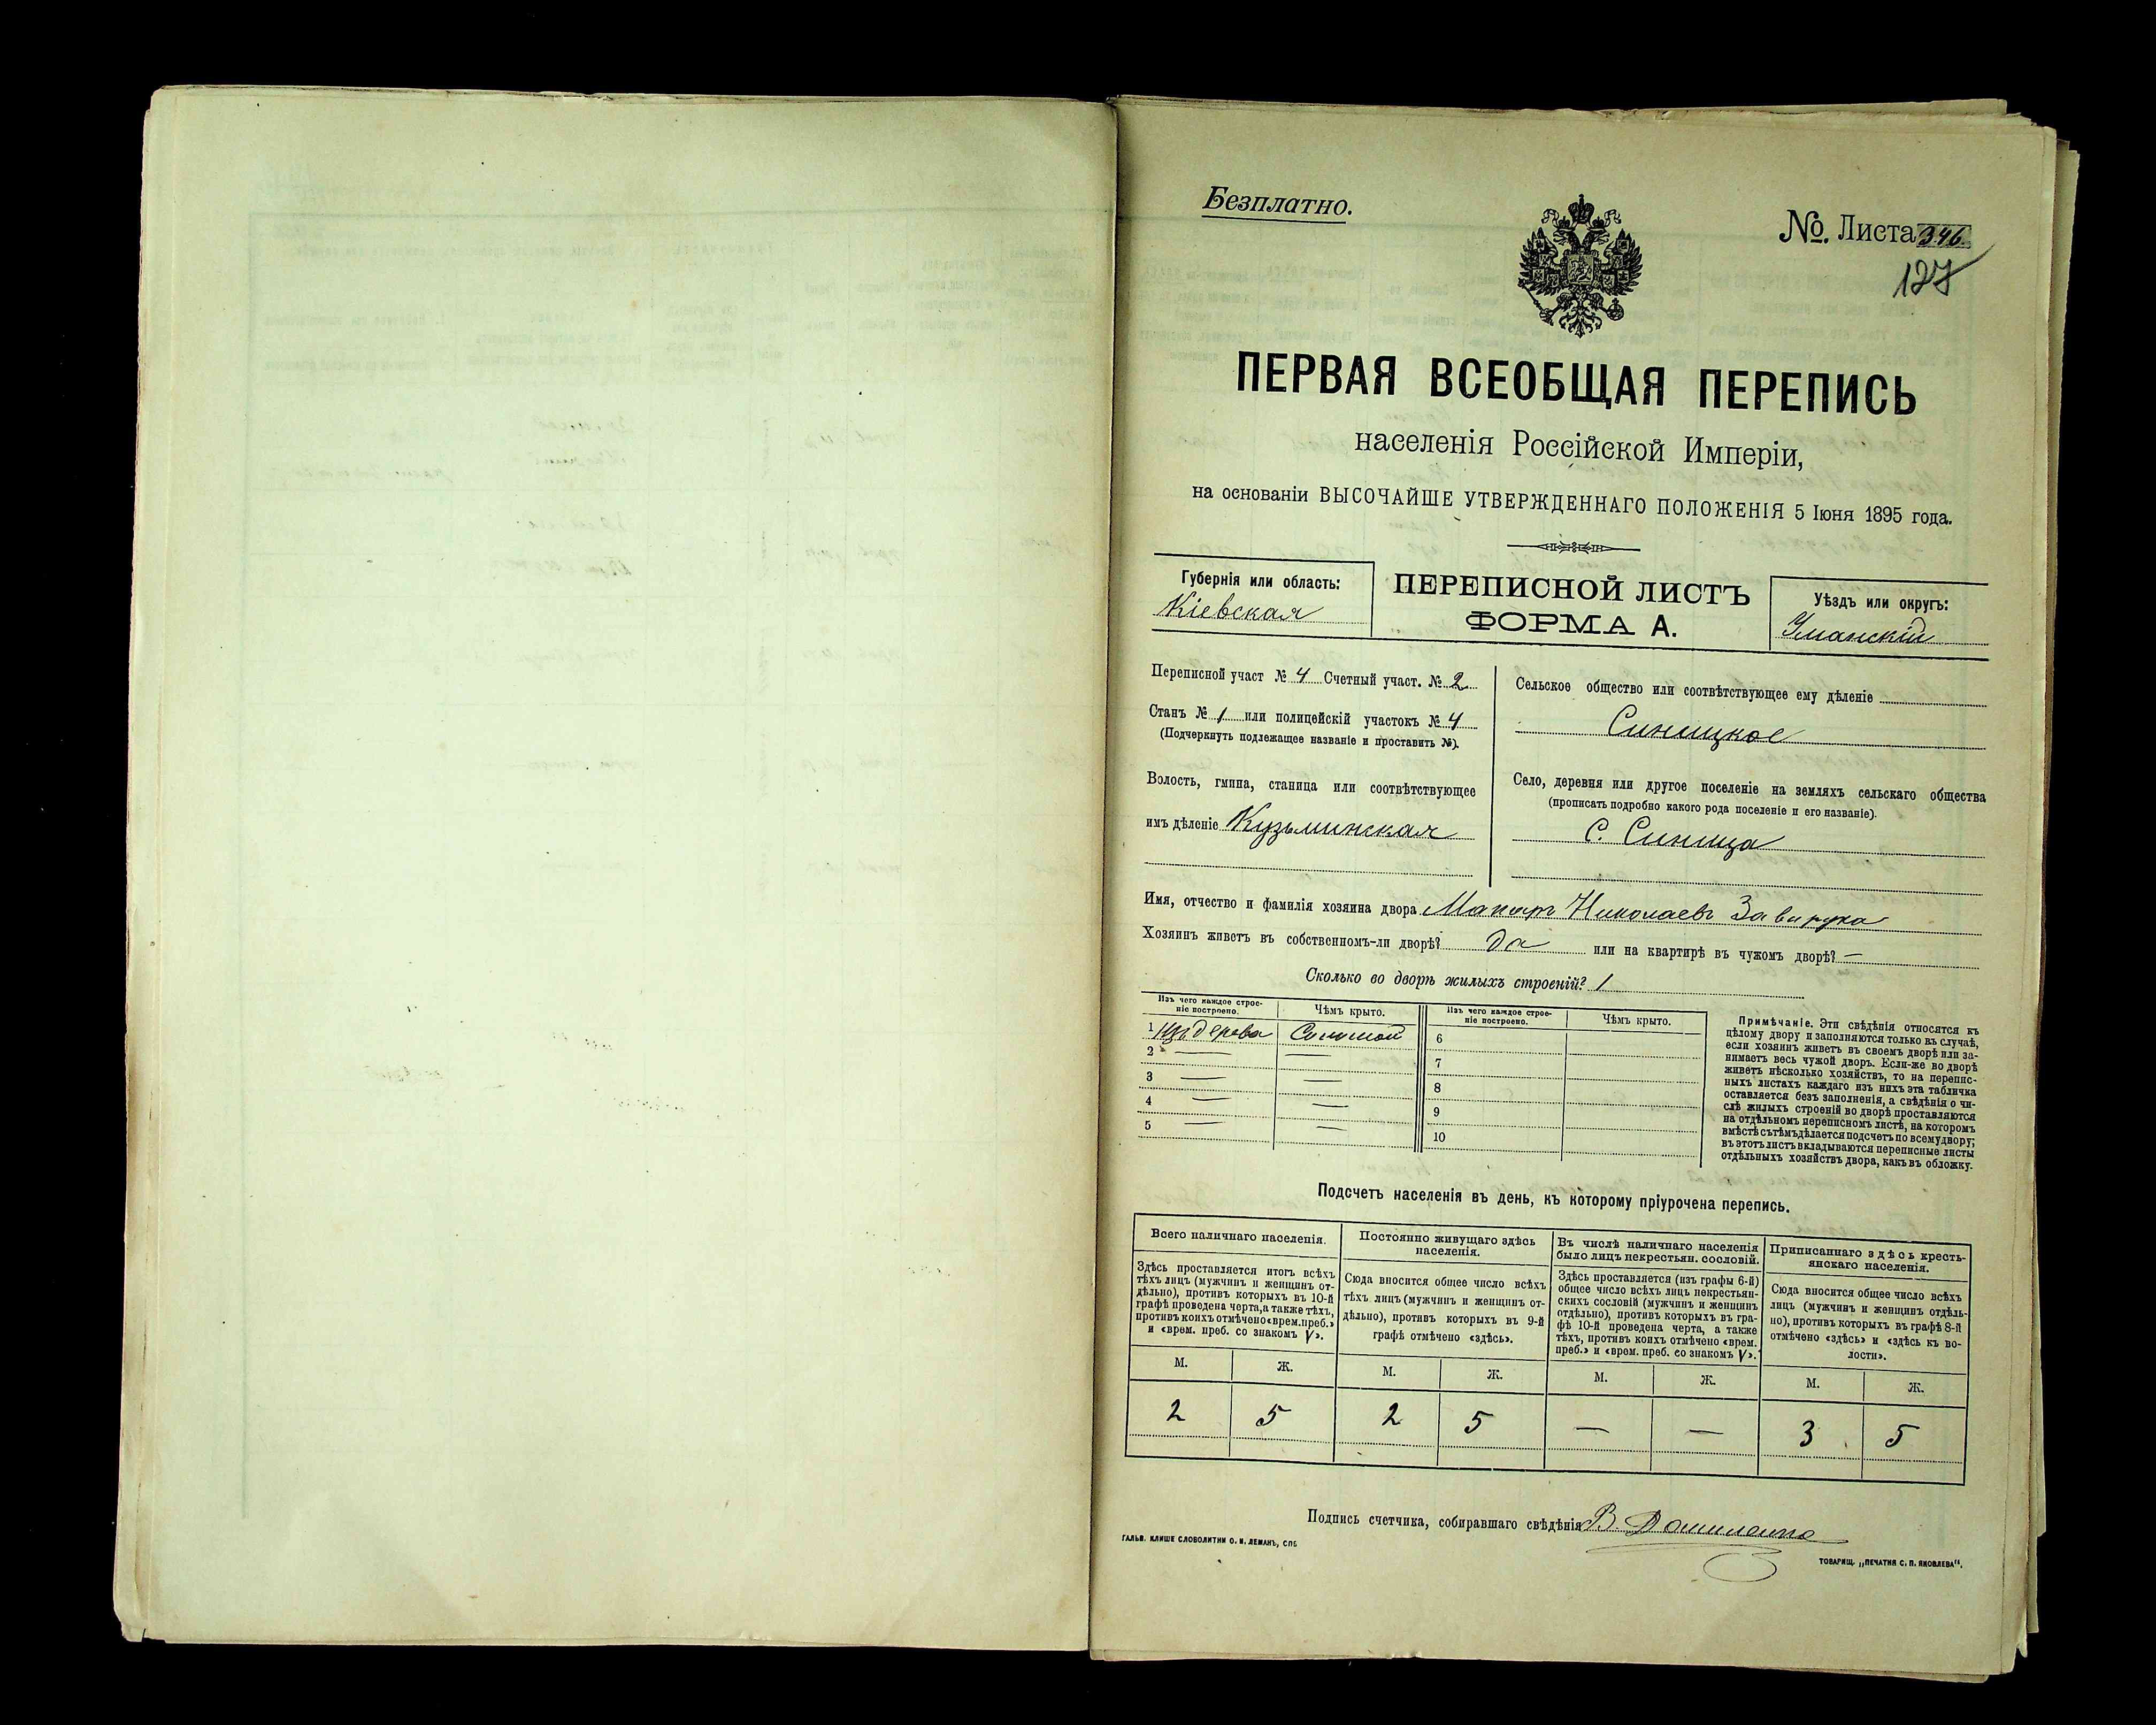 Безплатно.
№. Листа 346.
127
ПЕРВАЯ ВСЕОБЩАЯ ПЕРЕПИСЬ
населенія Россійской Имперіи,
на основаніи ВЫСОЧАЙШЕ УТВЕРЖДЕННАГО ПОЛОЖЕНІЯ 5 Іюня 1895 года.
Губернія или область:
Кіевская
ПЕРЕПИСНОЙ ЛИСТЪ
ФОРМА А.
Уѣздъ или округъ:
Уманскій
Переписной участ № 4 Счетный участ. № 2
Станъ № 1 или полицейскій участокъ № 4
(Подчеркнуть подлежащее названіе и проставить №).
Волость, гмина, станица или соотвѣтствующее
имъ дѣленіе Кузьминская
Сельское общество или соотвѣтствующее ему дѣленіе
Синицкое
Село, деревня или другое поселеніе на земляхъ сельскаго общества
(прописать подробно какого рода поселеніе и его названіе).
С. Синица
Имя, отчество и фамилія хозяина двора Макаръ Николаевъ Завируха
Хозяинъ живетъ въ собственномъ-ли дворѣ? да или на квартирѣ въ чужомъ дворѣ? —
Сколько во дворѣ жилыхъ строеній? 1
Изъ чего каждое строе-
ніе построено.
Чѣмъ крыто.
Изъ чего каждое строе-
ніе построено.
Чѣмъ крыто.
1 Изъ дерева Соломой 6
2 — — 7
3 — — 8
4 — — 9
5 — — 10
Примѣчаніе. Эти свѣдѣнія относятся къ
цѣлому двору и заполняются только въ случаѣ,
если хозяинъ живетъ въ своемъ дворѣ или за-
нимаетъ весь чужой дворъ. Если-же во дворѣ
живетъ нѣсколько хозяйствъ, то на перепис-
ныхъ листахъ каждаго изъ нихъ эта табличка
оставляется безъ заполненія, а свѣдѣнія о чи-
слѣ жилыхъ строеній во дворѣ проставляются
на отдѣльномъ переписномъ листѣ, на которомъ
вмѣстѣ съ тѣмъ дѣлается подсчетъ по всему двору;
въ этотъ листъ вкладываются переписные листы
отдѣльныхъ хозяйствъ двора, какъ въ обложку.
Подсчетъ населенія въ день, къ которому пріурочена перепись.
Всего наличнаго населенія.
Здѣсь проставляется итогъ всѣхъ
тѣхъ лицъ (мужчинъ и женщинъ от-
дѣльно), противъ которыхъ въ 10-й
графѣ проведена черта, а также тѣхъ,
противъ коихъ отмѣчено «врем. преб.»
и «врем. преб. со знакомъ V».
Постоянно живущаго здѣсь
населенія.
Сюда вносится общее число всѣхъ
тѣхъ лицъ (мужчинъ и женщинъ от-
дѣльно), противъ которыхъ въ 9-й
графѣ отмѣчено «здѣсь».
Въ числѣ наличнаго населенія
было лицъ некрестьян. сословій.
Здѣсь проставляется (изъ графы 6-й)
общее число всѣхъ лицъ некрестьян-
скихъ сословій (мужчинъ и женщинъ
отдѣльно), противъ которыхъ въ гра-
фѣ 10-й проведена черта, а также
тѣхъ, противъ коихъ отмѣчено «врем.
преб.» и «врем. преб. со знакомъ V».
Приписаннаго здѣсь кресть-
янскаго населенія.
Сюда вносится общее число всѣхъ
лицъ (мужчинъ и женщинъ отдѣль-
но), противъ которыхъ въ графѣ 8-й
отмѣчено «здѣсь» и «здѣсь къ во-
лости».
М. Ж. М. Ж. М. Ж. М. Ж.
2 5 2 5 — — 3 5
Подпись счетчика, собиравшаго свѣдѣнія В
ГАЛЬВ. КЛИШЕ СЛОВОЛИТНИ О. И. ЛЕМАНЪ, СПБ
ТОВАРИЩ. „ПЕЧАТНЯ С. П. ЯКОВЛЕВА“.